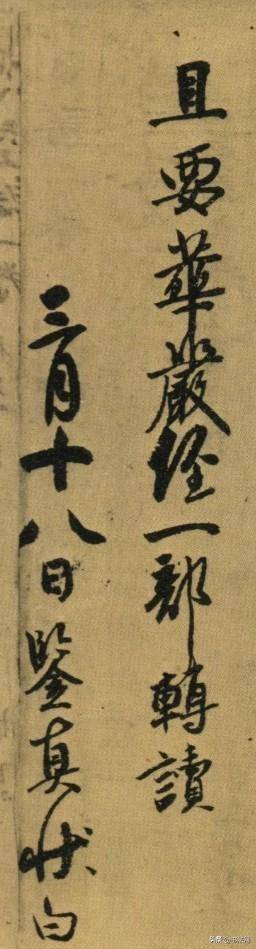 且要華嚴経一部轉讀
三月十八日鑒真状白